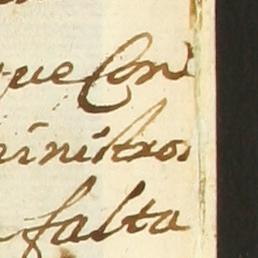 que Con
ministros
falta